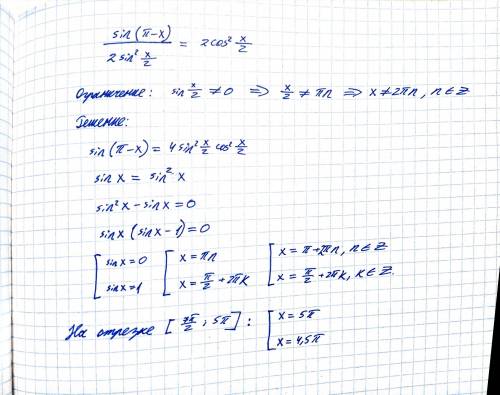 sin(π-x) / 2sin² x/2 = 2cos² x/2
Ограничение: sin x/2 ≠ 0 ⟹ x/2 ≠ πn ⟹ x ≠ 2πn, n∈Z
Решение:
sin(π-x) = 4sin² x/2 cos² x/2
sin x = sin² x
sin² x - sin x = 0
sin x (sin x - 1) = 0
[ sin x = 0 [ x = πn [ x = π + 2πn, n∈Z
sin x = 1 x = π/2 + 2πk x = π/2 + 2πk, k∈Z.
На отрезке [7π/2 ; 5π] : [ x = 5π
x = 4,5π